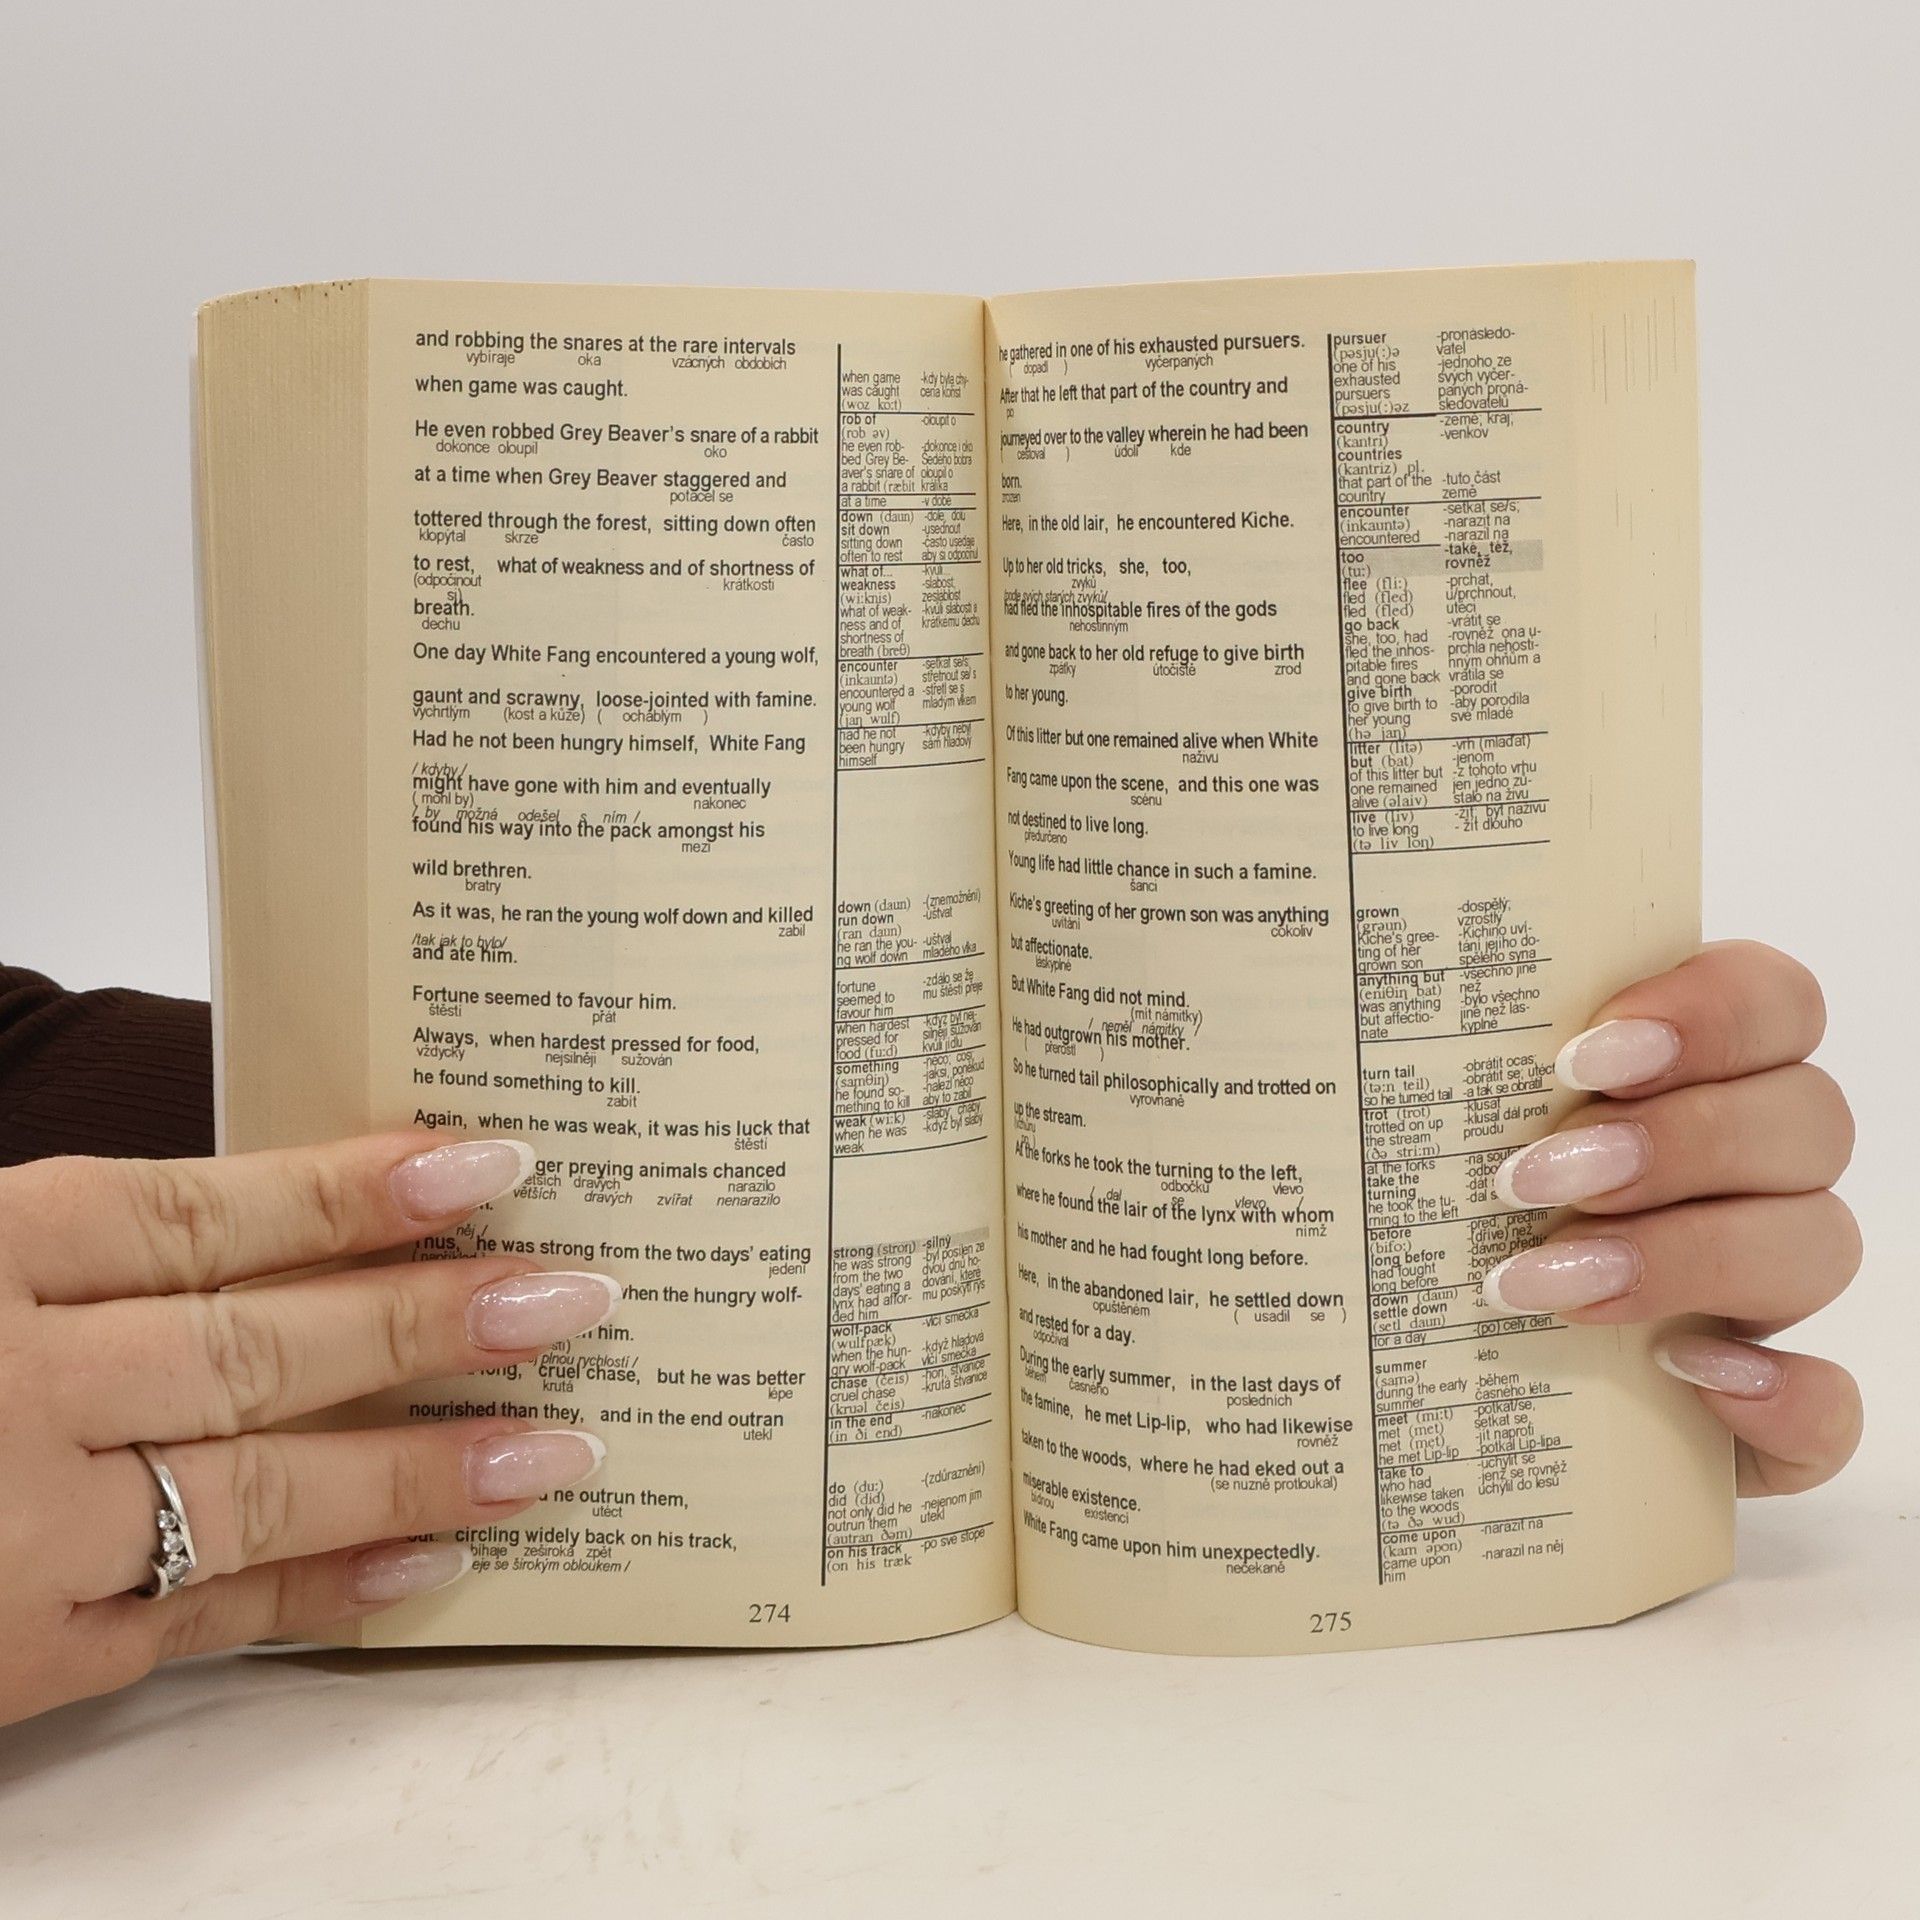 and robbing the snares at the rare intervals
vybíraje oka vzácných obdobích
when game was caught.
He even robbed Grey Beaver's snare of a rabbit
dokonce oloupil oko
at a time when Grey Beaver staggered and
potácel se
tottered through the forest, sitting down often
klopýtal skrze často
to rest, what of weakness and of shortness of
(odpočinout krátkosti
si)
breath.
dechu
One day White Fang encountered a young wolf,
gaunt and scrawny, loose-jointed with famine.
vychrtlým (kost a kůže) ( ochablým )
Had he not been hungry himself, White Fang
/ kdyby /
might have gone with him and eventually
( mohl by) nakonec
/ by možná odešel s ním /
found his way into the pack amongst his
mezi
wild brethren.
bratry
As it was, he ran the young wolf down and killed
zabil
/tak jak to bylo/
and ate him.
Fortune seemed to favour him.
štěstí přát
Always, when hardest pressed for food,
vždycky nejsilněji sužován
he found something to kill.
zabít
Again, when he was weak, it was his luck that
štěstí
ger preying animals chanced
dravých narazilo
větších dravých zvířat nenarazilo
něj /
Thus, he was strong from the two days' eating
jedení
when the hungry wolf-
him.
plnou rychlostí /
cruel chase, but he was better
krutá lépe
nourished than they, and in the end outran
utekl
he outrun them,
utéct
circling widely back on his track,
zeširoka zpět
eje se širokým obloukem /
when game -kdy byla chy-
was caught cena kořist
(woz ko:t)
rob of -oloupit o
(rob əv)
he even rob- -dokonce i oko
bed Grey Be- Šedého bobra
aver's snare of oloupil o
a rabbit (ræbit králíka
at a time -v době
down (daun) -dole, dolů
sit down -usednout
sitting down -často usedaje
often to rest aby si odpočinul
what of... -kvůli...
weakness -slabost,
(wi:knis) zesláblost
what of weak- -kvůli slabosti a
ness and of krátkému dechu
shortness of
breath (breθ)
encounter -setkat se/s,
(inkauntə) střetnout se/ s
encountered a -střetl se s
young wolf mladým vlkem
(jaŋ wulf)
had he not -kdyby nebyl
been hungry sám hladový
himself
down (daun) -(znemožnění)
run down -uštvat
(ran daun)
he ran the you- -uštval
ng wolf down mladého vlka
fortune -zdálo se že
seemed to mu štěstí přeje
favour him
when hardest -když byl nej-
pressed for silněji sužován
food (fu:d) kvůli jídlu
something -něco, cosi,
(samθiŋ) -jaksi, poněkud
he found so- -nalezl něco
mething to kill aby to zabil
weak (wi:k) -slabý, chabý
when he was -když byl slabý
weak
strong (stroŋ) -silný
he was strong -byl posílen ze
from the two dvou dnů ho-
days' eating a dování, které
lynx had affor- mu poskytl rys
ded him
wolf-pack -vlčí smečka
(wulfpæk)
when the hun- -když hladová
gry wolf-pack vlčí smečka
chase (čeis) -hon, štvanice
cruel chase -krutá štvanice
(kruəl čeis)
in the end -nakonec
(in ði end)
do (du:) -(zdůraznění)
did (did)
not only did he -nejenom jim
outrun them utekl
(autran ðəm)
on his track -po své stopě
(on his træk
274
he gathered in one of his exhausted pursuers.
( dopadl ) vyčerpaných
After that he left that part of the country and
po
journeyed over to the valley wherein he had been
( cestoval ) údolí kde
born.
zrozen
Here, in the old lair, he encountered Kiche.
Up to her old tricks, she, too,
zvyků
/podle svých starých zvyků/
had fled the inhospitable fires of the gods
nehostinným
and gone back to her old refuge to give birth
zpátky útočiště zrod
to her young.
Of this litter but one remained alive when White
naživu
Fang came upon the scene, and this one was
scénu
not destined to live long.
předurčeno
Young life had little chance in such a famine.
šanci
Kiche's greeting of her grown son was anything
uvítání cokoliv
but affectionate.
láskyplné
But White Fang did not mind.
(mít námitky)
/ neměl námitky /
He had outgrown his mother.
( přerostl )
So he turned tail philosophically and trotted on
vyrovnaně
up the stream.
At the forks he took the turning to the left,
odbočku vlevo
/ dal se vlevo /
where he found the lair of the lynx with whom
nímž
his mother and he had fought long before.
Here, in the abandoned lair, he settled down
opuštěném ( usadil se )
and rested for a day.
odpočíval
During the early summer, in the last days of
během časného posledních
the famine, he met Lip-lip, who had likewise
rovněž
taken to the woods, where he had eked out a
(se nuzně protloukal)
miserable existence.
bídnou existenci
White Fang came upon him unexpectedly.
nečekaně
pursuer -pronásledo-
(pəsju(:)ə vatel
one of his -jednoho ze
exhausted svých vyčer-
pursuers paných proná-
(pəsju(:)əz sledovatelů
country -země, kraj,
(kantri) -venkov
countries
(kantriz) pl.
that part of the -tuto část
country země
encounter -setkat se/s;
(inkauntə) -narazit na
encountered -narazil na
too -také, též,
(tu:) rovněž
flee (fli:) -prchat,
fled (fled) u/prchnout,
fled (fled) utéci
go back -vrátit se
she, too, had -rovněž ona u-
fled the inhos- prchla nehosti-
pitable fires hným ohňům a
and gone back vrátila se
give birth -porodit
to give birth to -aby porodila
her young své mladé
(hə jaŋ)
litter (litə) -vrh (mláďat)
but (bat) -jenom
of this litter but -z tohoto vrhu
one remained jen jedno zů-
alive (əlaiv) stalo na živu
live (liv) -žít, být naživu
to live long - žít dlouho
(tə liv loŋ)
grown -dospělý;
(grəun) vzrostlý
Kiche's gree- -Kichino uví-
ting of her tání jejího do-
grown son spělého syna
anything but -všechno jiné
(eniθiŋ bat) než
was anything -bylo všechno
but affectio- jiné než lás-
nate kyplné
turn tail -obrátit ocas;
(tə:n teil) -obrátit se, utéct
so he turned tail -a tak se obrátil
trot (trot) -klusat
trotted on up -klusal dál proti
the stream proudu
(ðə stri:m)
at the forks
take the
turning
he took the tu-
rning to the left
before -před; předtím
(bifo:) -(dříve) než
long before -dávno předtí
had fought
long before
down (daun)
settle down
(setl daun)
for a day -(po) celý den
summer -léto
(samə)
during the early -během
summer časného léta
meet (mi:t) -potkat/se,
met (met) setkat se,
met (met) -jít naproti
he met Lip-lip -potkal Lip-lipa
take to -uchýlit se
who had -jenž se rovněž
likewise taken uchýlil do lesů
to the woods
(tə ðə wud)
come upon -narazit na
(kam əpon)
came upon -narazil na něj
him
275